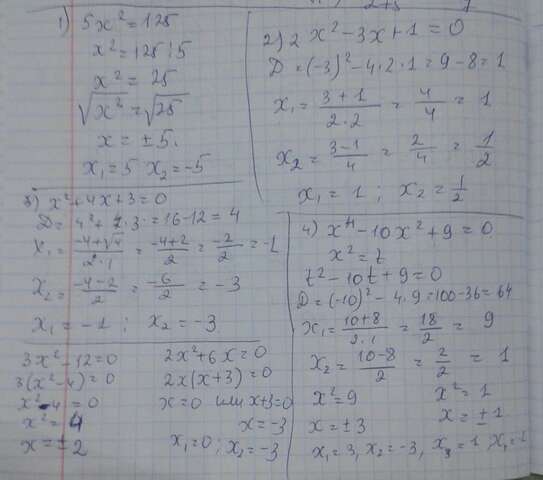 1) 5x² = 125
x² = 125 : 5
x² = 25
√x² = √25
x = ±5.
x₁ = 5 x₂ = -5
2) 2x² - 3x + 1 = 0
D = (-3)² - 4·2·1 = 9 - 8 = 1
x₁ = (3+1)/(2·2) = 4/4 = 1
x₂ = (3-1)/4 = 2/4 = 1/2
x₁ = 1 ; x₂ = 1/2
x² + 4x + 3 = 0
= 16 - 12 = 4
x₁ = (-4+√4)/(2·1) = (-4+2)/2 = -2/2 = -1
x₂ = (-4-2)/2 = -6/2 = -3
x₁ = -1 ; x₂ = -3
4) x⁴ - 10x² + 9 = 0
x² = t
t² - 10t + 9 = 0
D = (-10)² - 4·9 = 100 - 36 = 64
x₁ = (10+8)/(2·1) = 18/2 = 9
x₂ = (10-8)/2 = 2/2 = 1
x² = 9 x² = 1
x = ±3 x = ±1
x₁ = 3, x₂ = -3, x₃ = 1
3x² - 12 = 0
3(x² - 4) = 0
x² - 4 = 0
x² = 4
x = ±2
2x² + 6x = 0
2x(x + 3) = 0
x = 0 или x + 3 = 0
x = -3
x₁ = 0 ; x₂ = -3